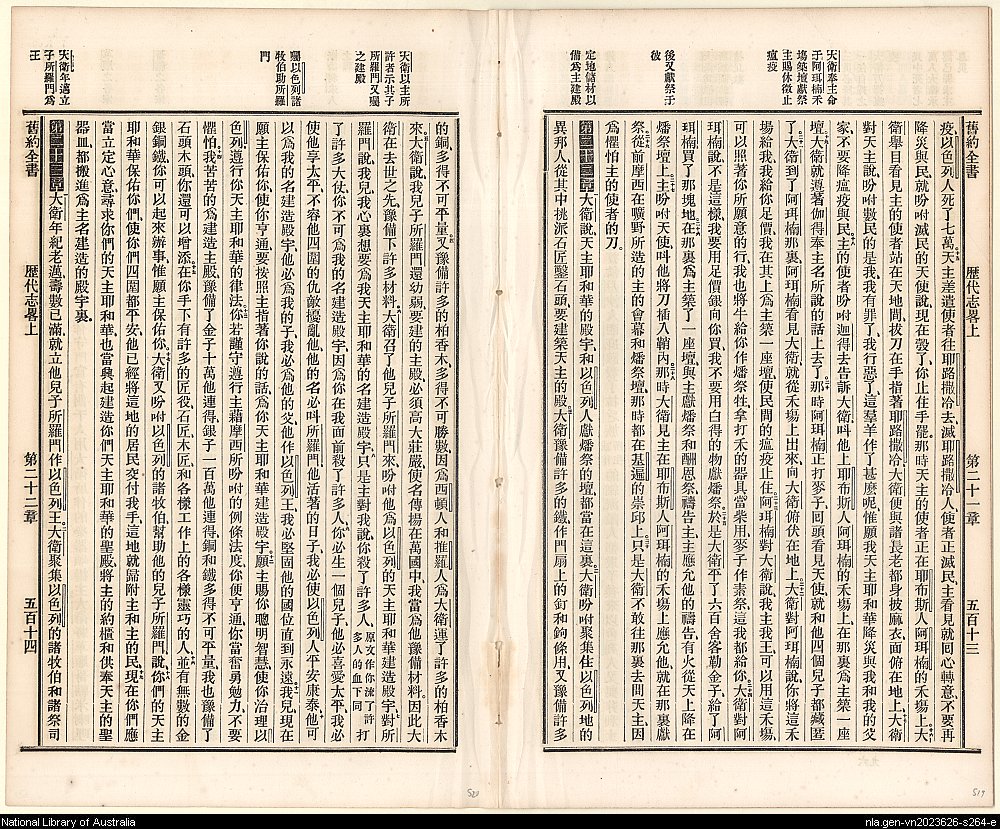 大衛奉主命
于阿珥楠禾
場築壇獻祭
主賜休徵止
瘟疫
後又獻祭于
彼
定地儲材以
備爲主建殿
舊約全書 歷代志畧上 第二十一章 五百十三
疫以色列人死了七萬天主差遣使者往耶路撒冷去滅耶路撒冷人使者正在滅民主看見就囘心轉意不要再
降災與民就吩咐滅民的天使說現在彀了你止住手罷那時天主的使者正在耶布斯人阿珥楠的禾場上大
衛舉目看見主的使者站在天地間拔刀在手指著耶路撒冷大衛便與諸長老都身披麻衣面俯在地上大衛
對天主說吩咐數民的是我我有罪了我行惡了這羣羊作了甚麼呢惟願我天主耶和華降災與我和我的父
家不要降瘟疫與民主的使者吩咐迦得去告訴大衛叫他上耶布斯人阿珥楠的禾場上在那裏爲主築一座
壇大衛就遵著伽得奉主名所說的話上去了那時阿珥楠正打麥子囘頭看見天使就和他四個兒子都藏匿
了大衛到了阿珥楠那裏阿珥楠看見大衛就從禾場上出來向大衛俯伏在地上大衛對阿珥楠說你將這禾
場給我我給你足價我在其上爲主築一座壇使民間的瘟疫止住阿珥楠對大衛說我主我王可以用這禾場
可以照著你所願意的行我也將牛給你作燔祭牲拿打禾的器具當柴用麥子作素祭這我都給你大衛對阿
珥楠說不是這樣我要用足價銀向你買我不要用白得的物獻燔祭於是大衛平了六百舍客勒金子給了阿
珥楠買了那塊地在那裏爲主築了一座壇與主獻燔祭和酬恩祭禱吿主主應允他的禱吿有火從天上降在
燔祭壇上主吩咐天使叫他將刀插入鞘內那時大衛見主在耶布斯人阿珥楠的禾場上應允他就在那裏獻
祭從前摩西在曠野所造的主的會幕和燔祭壇那時都在基遍的崇邱上只是大衛不敢往那裏去問天主因
爲懼怕主的使者的刀
第二十二章大衛說天主耶和華的殿宇和以色列人獻燔祭的壇都當在這裏大衛吩咐聚集住以色列地的
異邦人從其中挑派石匠鑿石頭要建築天主的殿大衛豫備許多的鐵作門扇上的釘和鉤條用又豫備許多
大衛以主所
許者示其子
所羅門又囑
之建殿
囑以色列諸
牧伯助所羅
門
大衛年邁立
子所羅門爲
王
的銅多得不可平量又豫備許多的柏香木多得不可勝數因爲西頓人和推羅人爲大衛運了許多的柏香木
來大衛說我兒子所羅門還幼弱要建的主的殿必須高大莊嚴使名傳揚在萬國中我當爲他豫備材料因此大
衛在去世之先豫備下許多材料大衛召了他兒子所羅門來吩咐他爲以色列的天主耶和華建造殿宇對所
羅門說我兒我心裏想要爲我天主耶和華的名建造殿宇只是主對我說你殺了許多人原文作你流了許多人的血下同打
了許多大仗你不可爲我的名建造殿宇因爲你在我面前殺了許多人你必生一個兒子他必喜愛太平我必
使他享太平不容他四圍的仇敵擾亂他他的名必叫所羅門他活著的日子我必使以色列人平安康泰他可
以爲我的名建造殿宇他必爲我的子我必爲他的父他作以色列王我必堅固他的國位直到永遠我兒現在
願主保佑你使你亨通要按照主指著你說的話爲你天主耶和華建造殿宇願主賜你聰明智慧使你治理以
色列遵行你天主耶和華的律法你若謹守遵行主藉摩西所吩咐的例條法度你便亨通你當奮勇勉力不要
懼怕我苦苦的爲建造主殿豫備了金子十萬他連得銀子一百萬他連得銅和鐵多得不可平量我也豫備了
石頭木頭你還可以增添在你手下有許多的匠役石匠木匠和各樣工作上的各樣靈巧的人並有無數的金
銀銅鐵你可以起來辦事惟願主保佑你大衛又吩咐以色列的諸牧伯幫助他的兒子所羅門說你們的天主
耶和華保佑你們使你們四圍都平安他已經將這地的居民交付我手這地就歸附主和主的民現在你們應
當立定心意尋求你們的天主耶和華也當興起建造你們天主耶和華的聖殿將主的約櫃和供奉天主的聖
器皿都搬進爲主名建造的殿宇裏
第二十三章大衛年紀老邁壽數已滿就立他兒子所羅門作以色列王大衛聚集以色列的諸牧伯和諸祭司
舊約全書 歷代志畧上 第二十二章 五百十四
520
519
National Library of Australia
nla.gen-vn2023626-s264-e